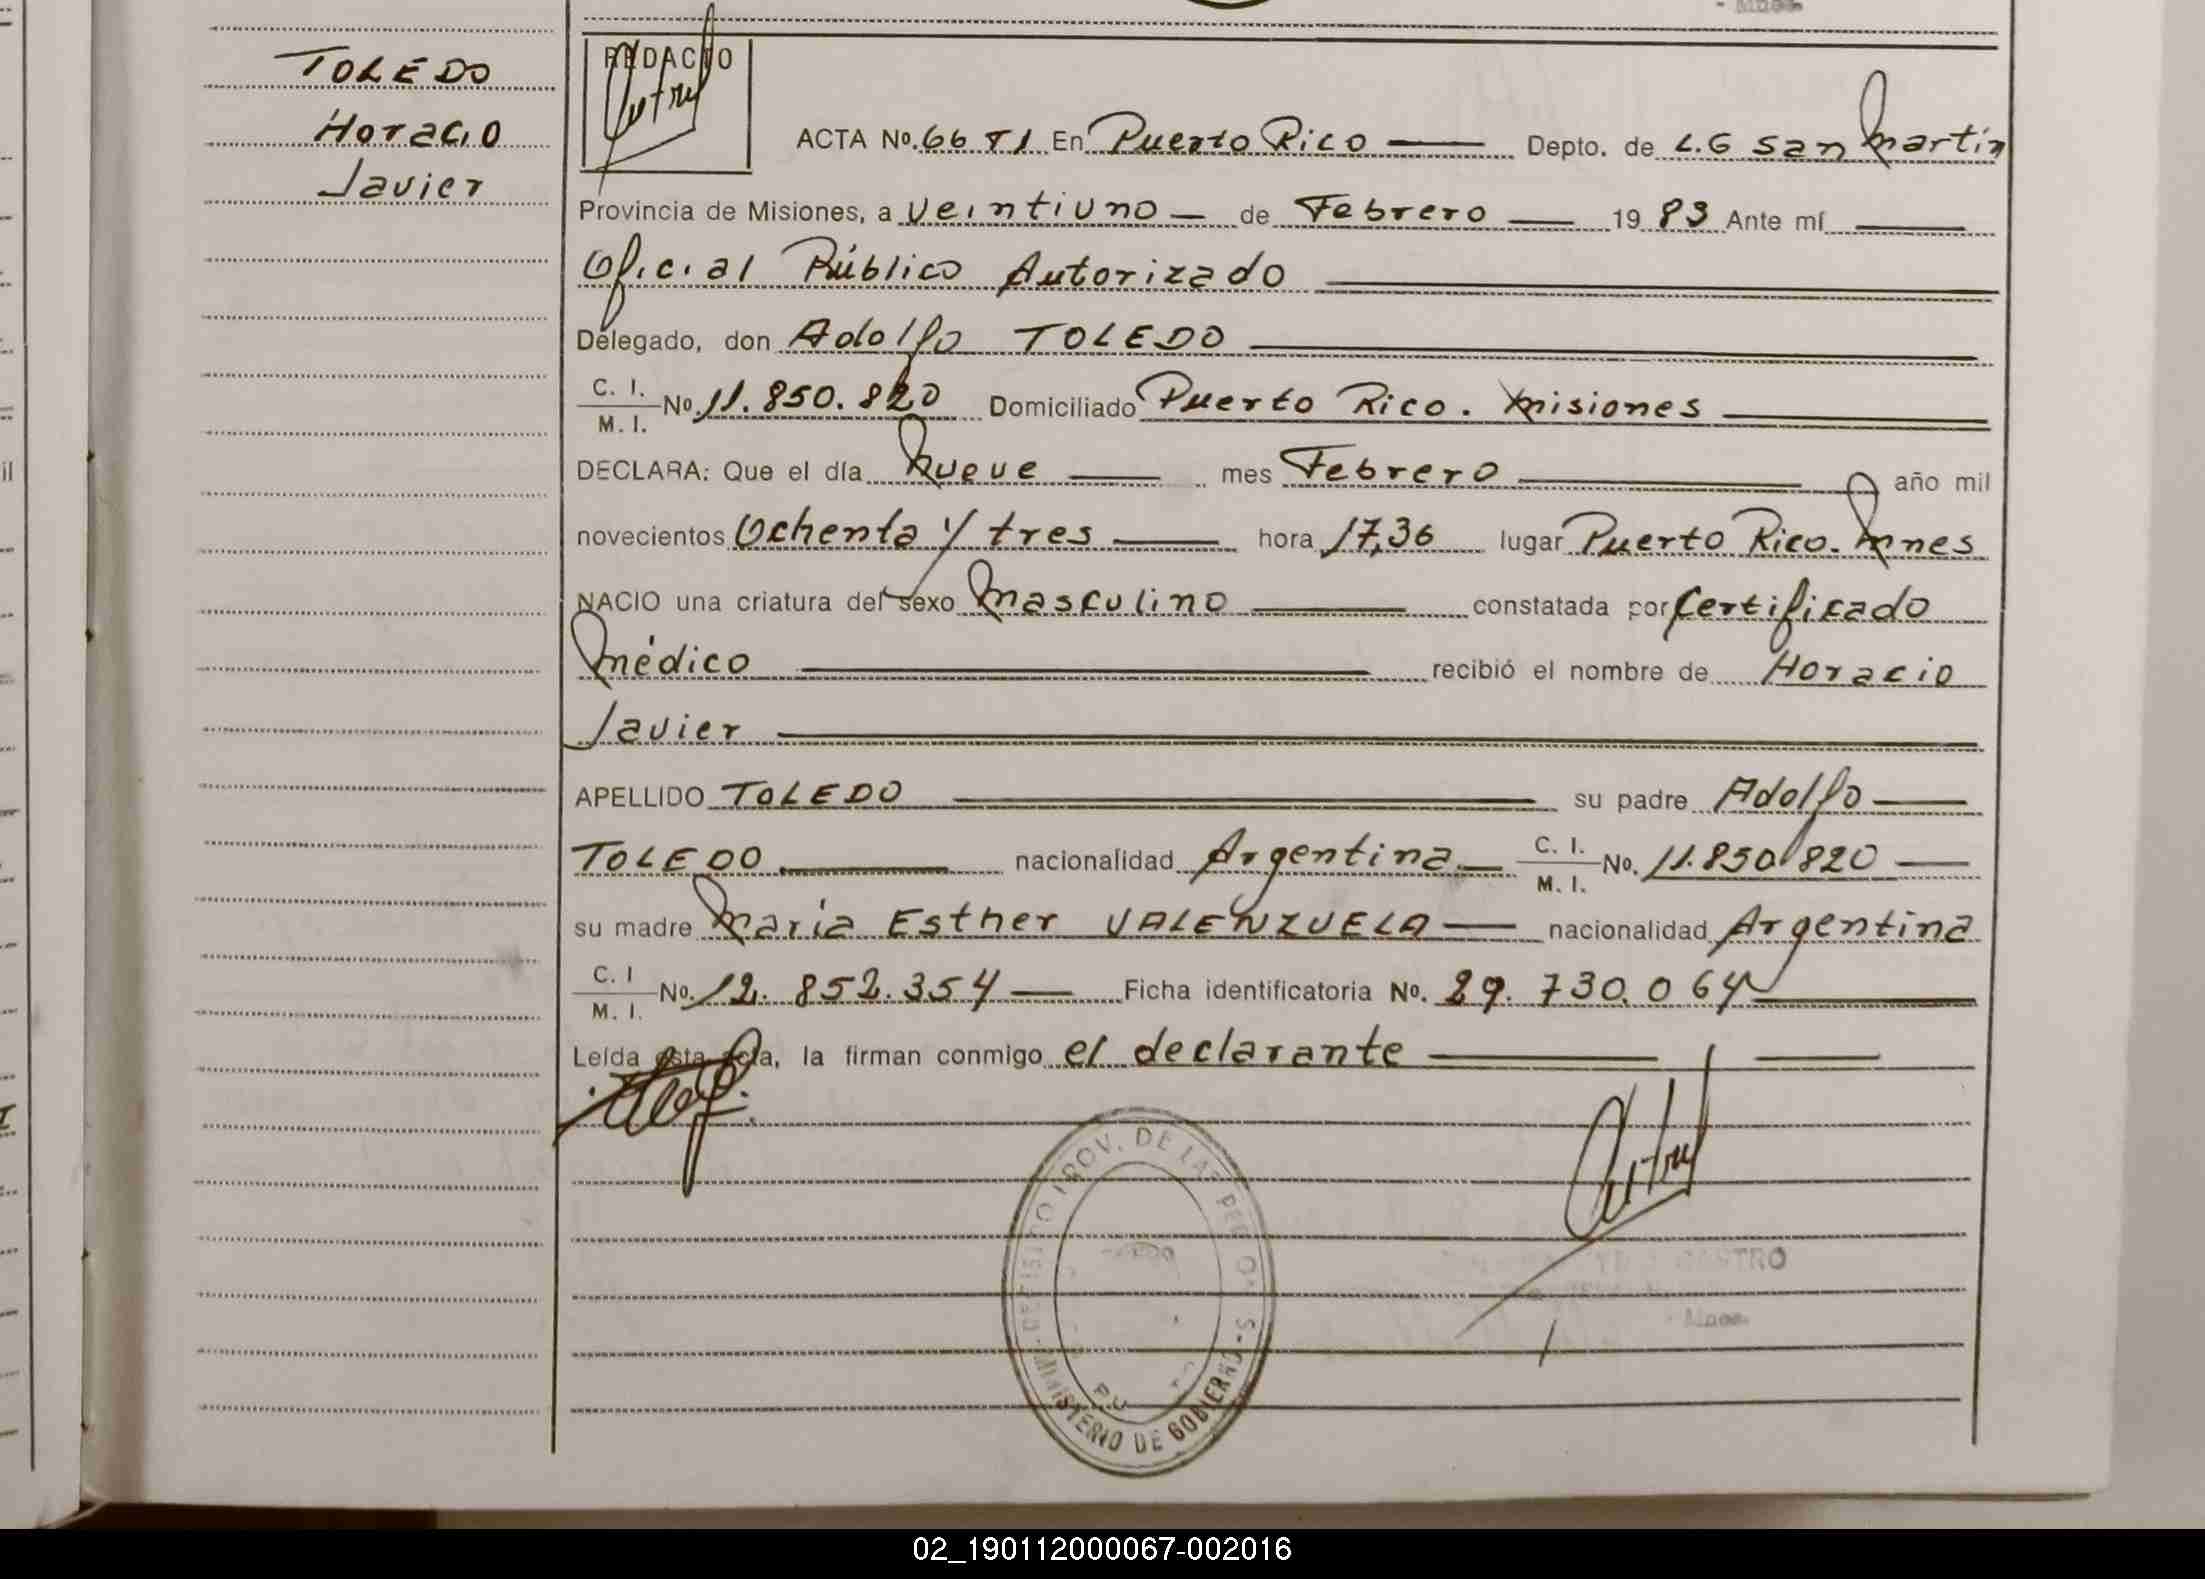 TOLEDO
Horacio
Javier
REDACTO
ACTA Nº. 66 T1 En Puerto Rico Depto. de L.G San Martín
Provincia de Misiones, a veintiuno de Febrero 1983 Ante mí
Oficial Público Autorizado
Delegado, don Adolfo TOLEDO
C. I.
M. I. Nº. 11.850.820 Domiciliado Puerto Rico. Misiones
DECLARA: Que el día Nueve mes Febrero año mil
novecientos Ochenta y tres hora 17,36 lugar Puerto Rico. Mnes
NACIO una criatura del sexo Masculino constatada por Certificado
Médico recibió el nombre de Horacio
Javier
APELLIDO TOLEDO su padre Adolfo
TOLEDO nacionalidad Argentina C. I.
M. I. No. 11.850.820
su madre María Esther VALENZUELA nacionalidad Argentina
C. I
M. I. No. 12.852.354 Ficha identificatoria Nº. 29.730.064
Leída esta acta, la firman conmigo el declarante
PROV. DE LAS PER
MINISTERIO DE GOBIERNO
CASTRO
Mnes.
02_190112000067-002016